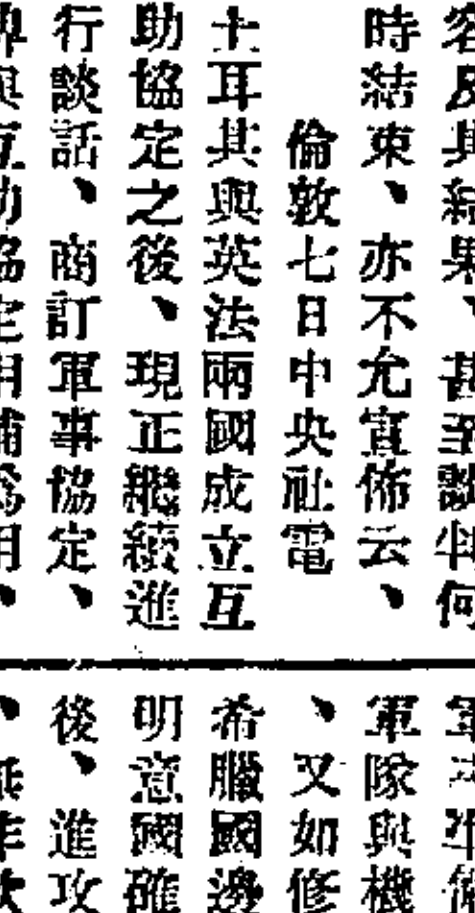 容及其結果、甚至談判何
時結束、亦不允宣佈云、
倫敦七日中央社電
土耳其與英法兩國成立互
助協定之後、現正繼續進
行談話、商訂軍事協定、
與互助協定相輔爲用、
軍隊與機
、又如修
希臘國邊
明意國確
後、進攻